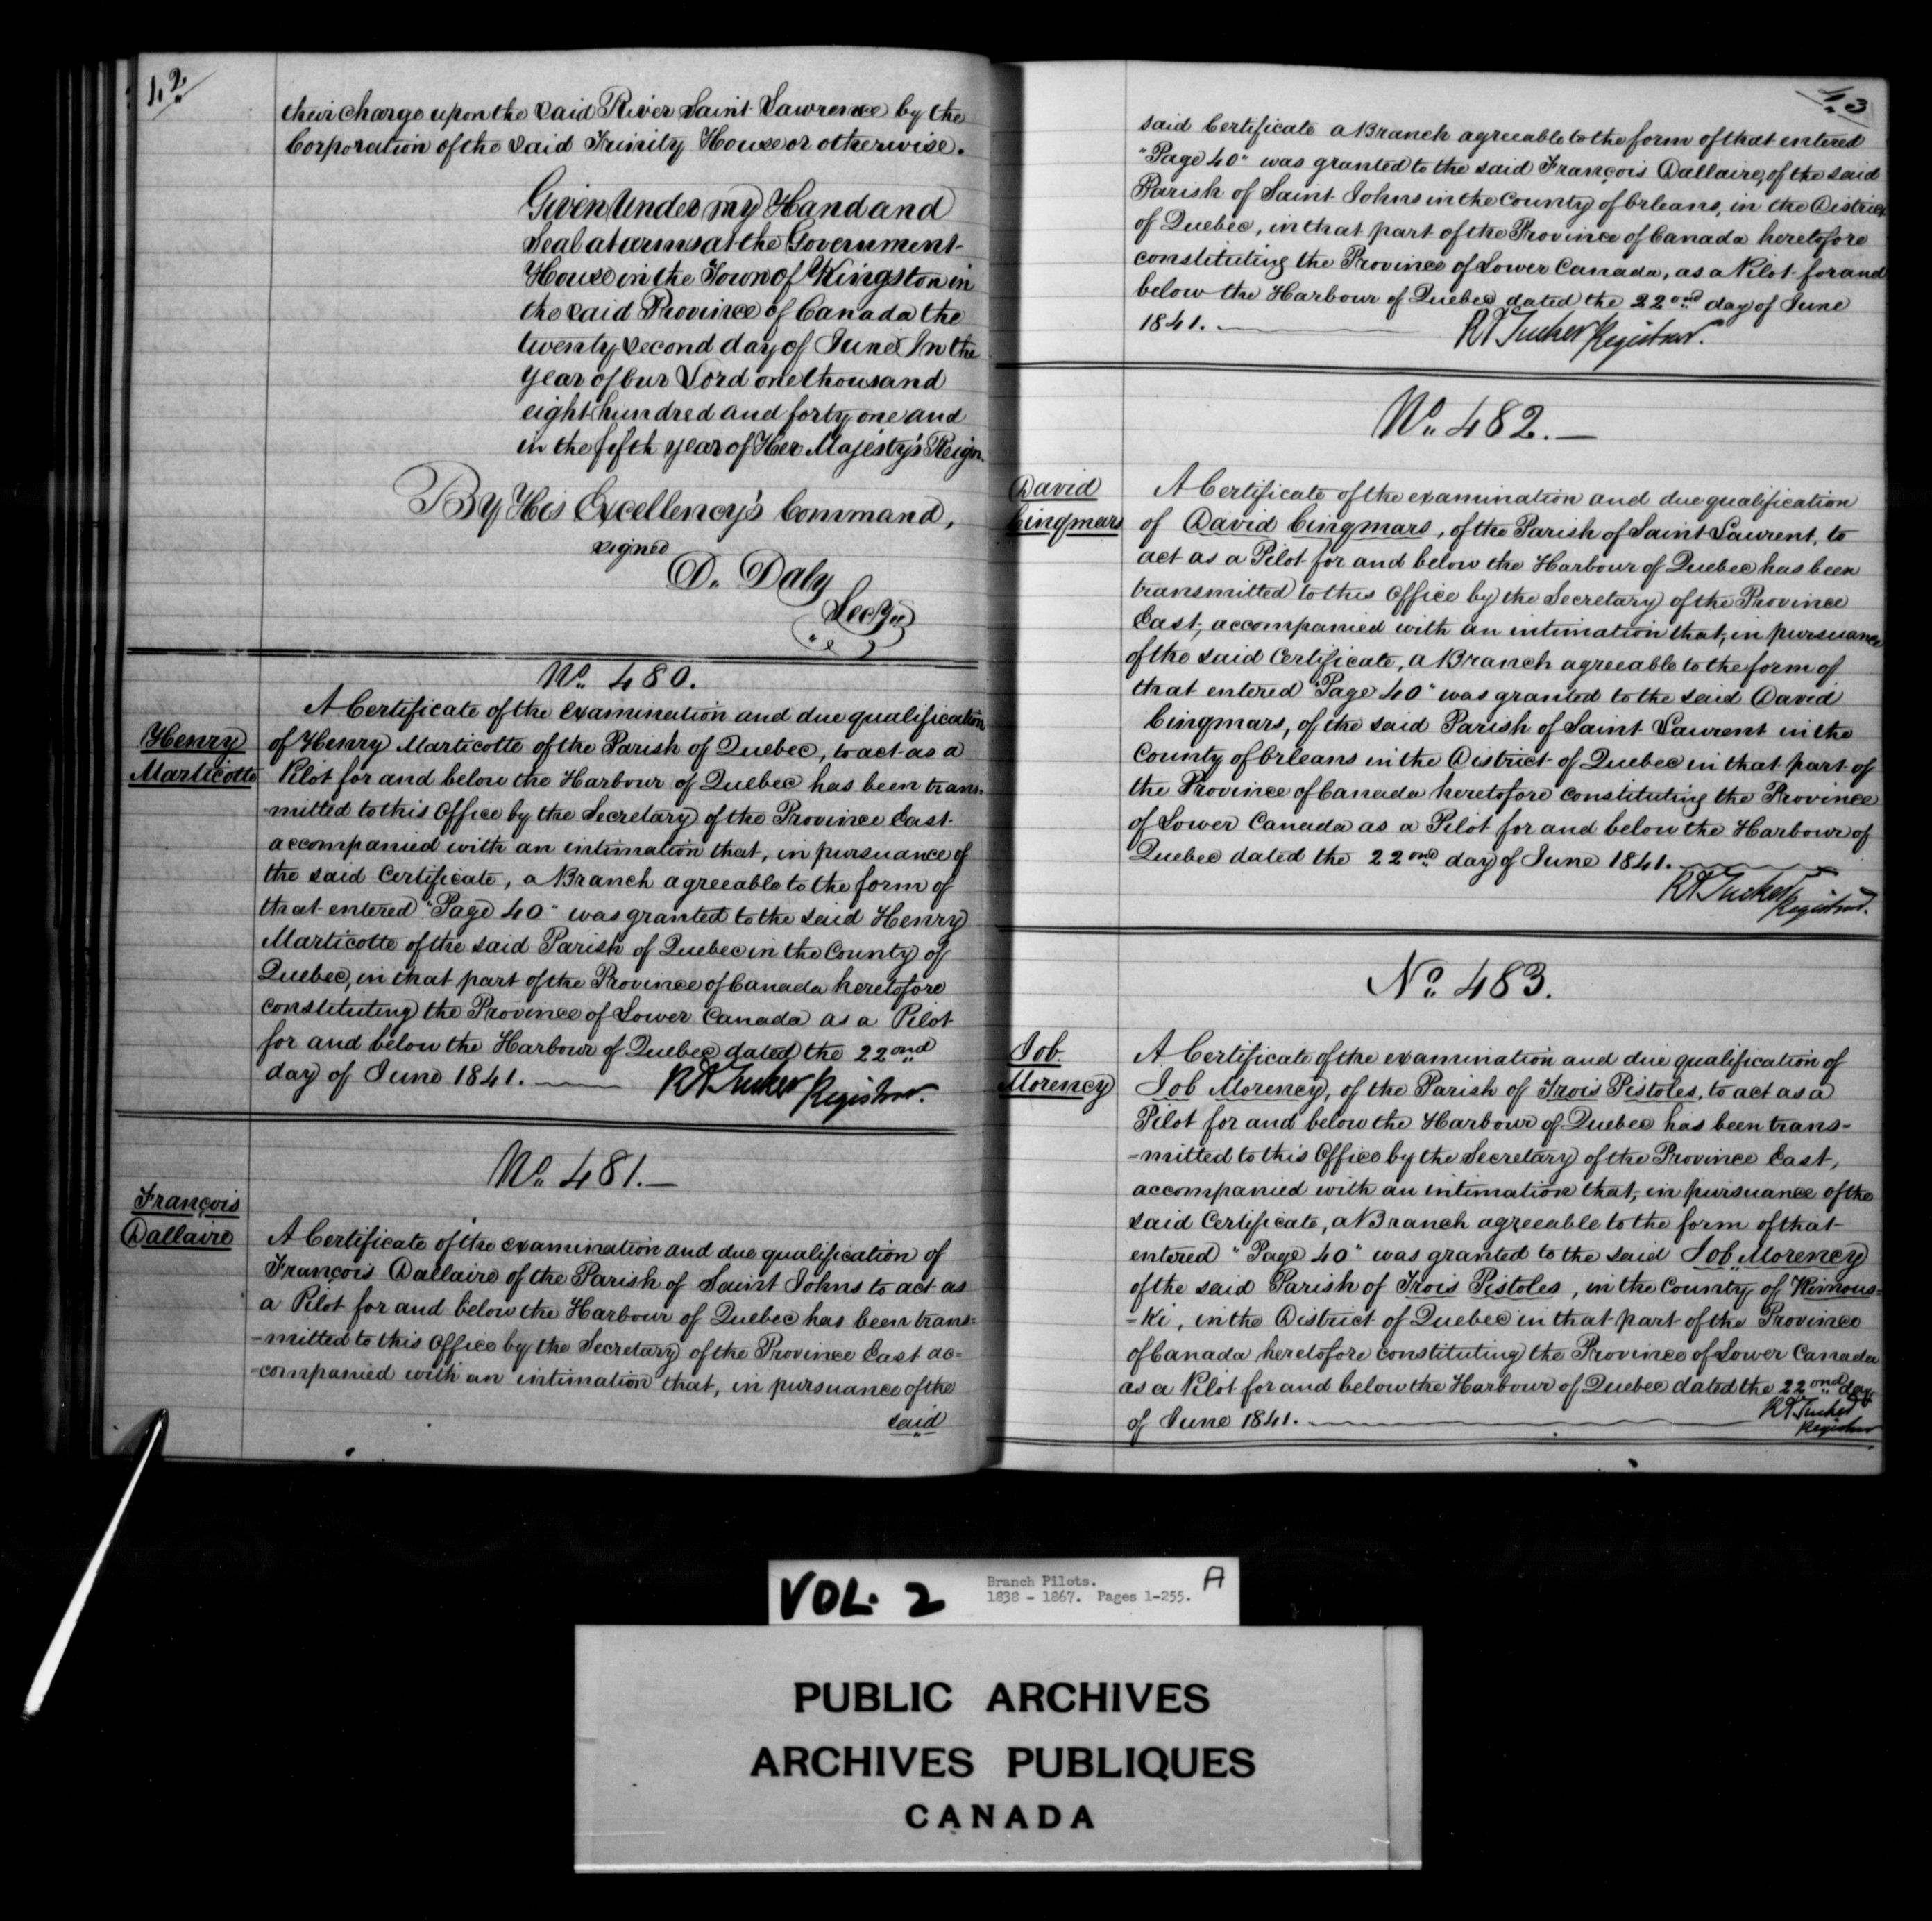 42
their charge upon the said River Saint Lawrence by the
Corporation of the said Trinity House or otherwise.
Given Under my Hand and
Seal at arms at the Government
House in the Town of Kingston in
the said Province of Canada the
twenty second day of June In the
Year of Our Lord one thousand
eight hundred and forty one and
in the fifth year of Her Majesty's Reign.
By His Excellency's Command,
signed
D. Daly
Secry
No. 480.
Henry
Marticotte
A Certificate of the examination and due qualification
of Henry Marticotte of the Parish of Quebec, to act as a
Pilot for and below the Harbour of Quebec has been trans-
-mitted to this Office by the Secretary of the Province East
accompanied with an intimation that, in pursuance of
the said Certificate, a Branch agreeable to the form of
that entered "Page 40" was granted to the said Henry
Marticotte of the said Parish of Quebec in the County of
Quebec, in that part of the Province of Canada heretofore
constituting the Province of Lower Canada as a Pilot
for and below the Harbour of Quebec dated the 22ond
day of June 1841. R A Tucker Registrar.
No. 481.—
François
Dallaire
A Certificate of the examination and due qualification of
François Dallaire of the Parish of Saint Johns to act as
a Pilot for and below the Harbour of Quebec has been trans-
-mitted to this Office by the Secretary of the Province East ac=
=companied with an intimation that, in pursuance of the
said
43
said Certificate a Branch agreeable to the form of that entered
"Page 40" was granted to the said François Dallaire, of the said
Parish of Saint Johns in the County of Orleans, in the District
of Quebec, in that part of the Province of Canada heretofore
constituting the Province of Lower Canada, as a Pilot for and
below the Harbour of Quebec dated the 22ond day of June
1841. R A Tucker Registrar.
No. 482.—
David
Cinqmars
A Certificate of the examination and due qualification
of David Cinqmars, of the Parish of Saint Laurent, to
act as a Pilot for and below the Harbour of Quebec has been
transmitted to this Office by the Secretary of the Province
East, accompanied with an intimation that, in pursuance
of the said Certificate, a Branch agreeable to the form of
that entered "Page 40" was granted to the said David
Cinqmars, of the said Parish of Saint Laurent in the
County of Orleans in the District of Quebec in that part of
the Province of Canada heretofore constituting the Province
of Lower Canada as a Pilot for and below the Harbour of
Quebec dated the 22ond day of June 1841.
R A Tucker
Registrar.
No. 483.
Job
Morency
A Certificate of the examination and due qualification of
Job Morency, of the Parish of Trois Pistoles, to act as a
Pilot for and below the Harbour of Quebec has been trans-
-mitted to this Office by the Secretary of the Province East,
accompanied with an intimation that, in pursuance of the
said Certificate, a Branch agreeable to the form of that
entered "Page 40" was granted to the said Job Morency
of the said Parish of Trois Pistoles, in the County of Rimous=
-ki, in the District of Quebec in that part of the Province
of Canada heretofore constituting the Province of Lower Canada
as a Pilot for and below the Harbour of Quebec dated the 22ond day
of June 1841. R A Tucker
Registrar
VOL. 2 Branch Pilots. A
1838 - 1867. Pages 1-255.
PUBLIC ARCHIVES
ARCHIVES PUBLIQUES
CANADA